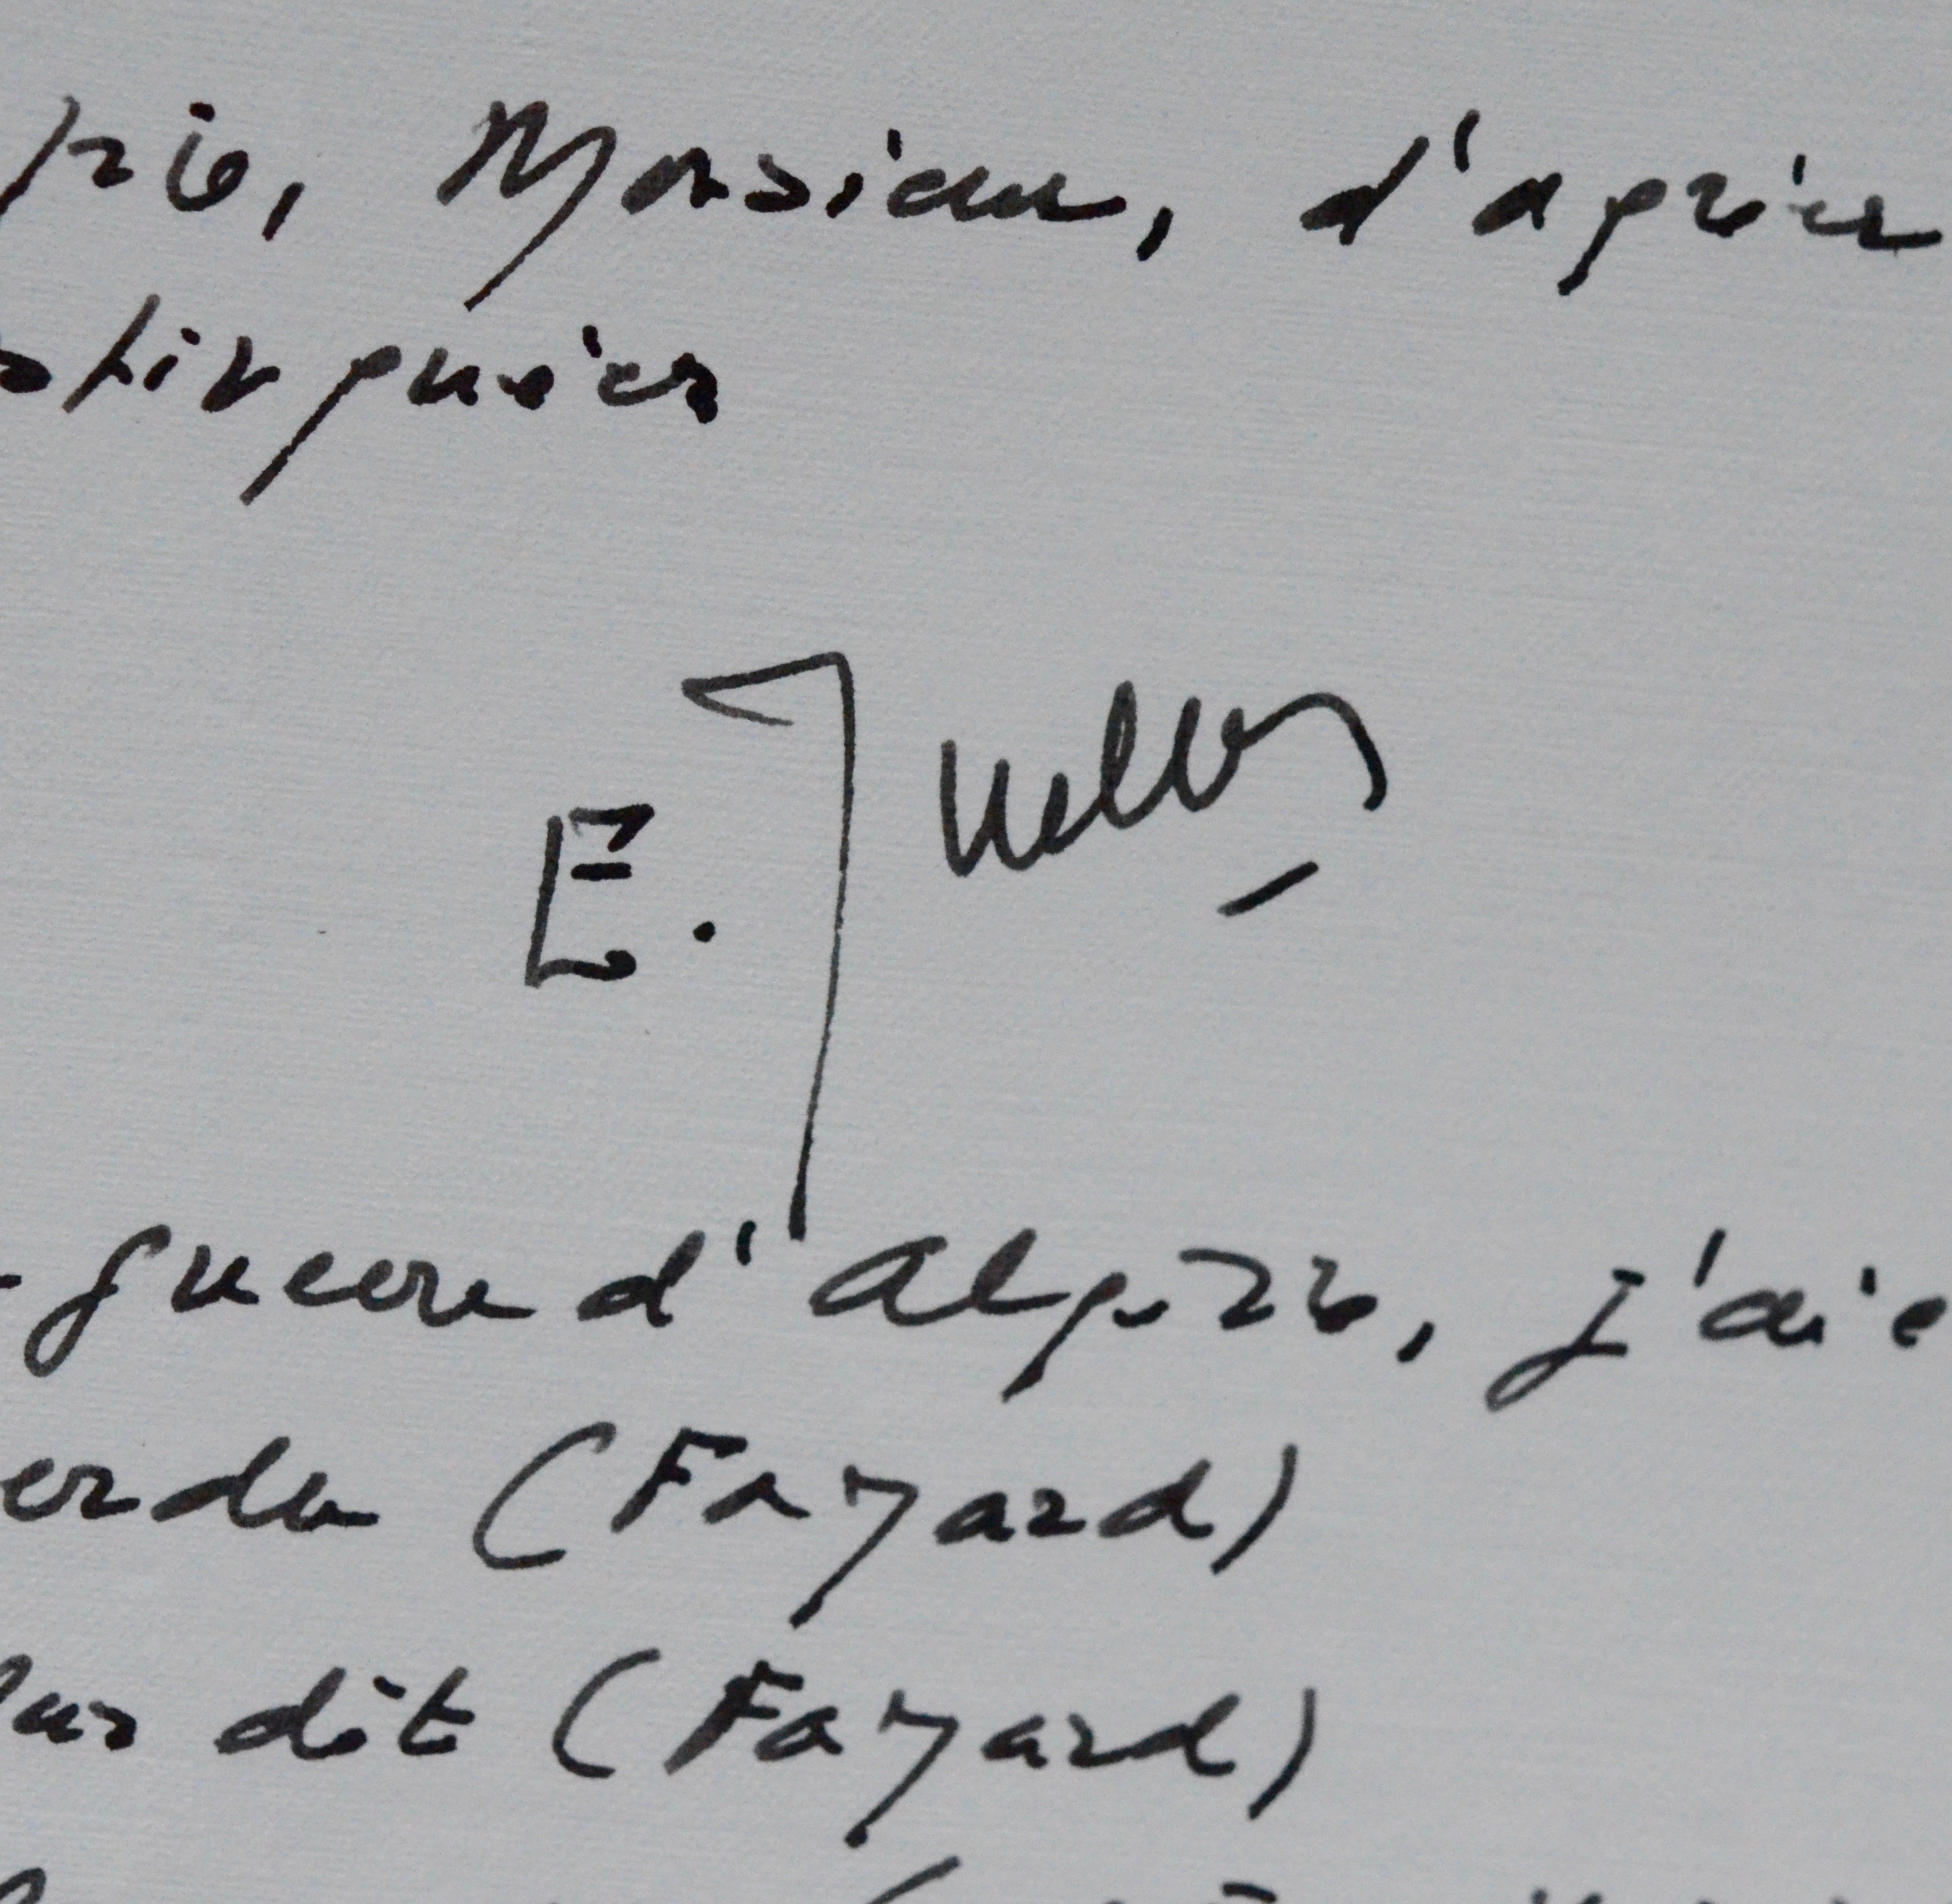 prie, Monsieur, d'agréer
stinguées
E. Jouhaud
guerre d'Algérie, j'ai é
erdu (Fayard)
dit (Fayard)